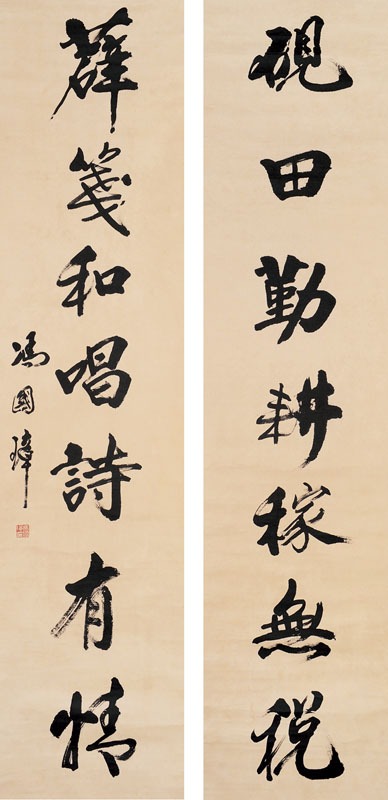 硯田勤耕稼無税
薛箋和唱詩有情
馮國璋